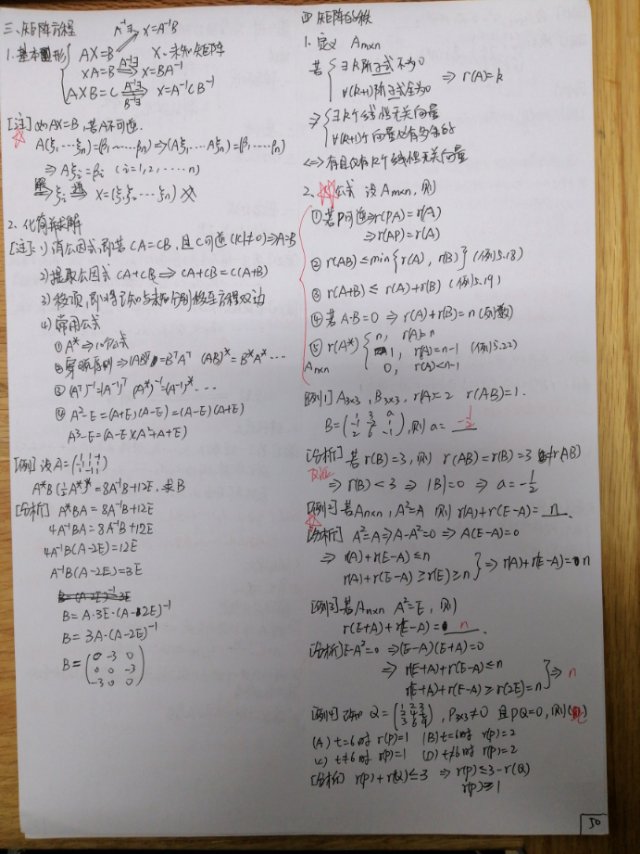 三、矩阵方程
1.基本图形 { AX=B A⁻¹∃⇒ X=A⁻¹B X、未知矩阵
XA=B A⁻¹∃⇒ X=BA⁻¹
AXB=C A⁻¹∃ B⁻¹∃⇒ X=A⁻¹CB⁻¹
[注] 如AX=B,若A不可逆.
A(ξ₁…ξn)=(β₁……βn)⇒(Aξ₁…Aξn)=(β₁…βn)
⇒ Aξi=βi (i=1,2,……n)
ξi X=(ξ₁,ξ₂…ξn)
2. 化简并求解
[注]:1) 消公因式,即若CA=CB,且C可逆(|C|≠0)⇒A=B
2) 提取公因式 CA+CB ⇒ CA+CB=C(A+B)
3) 移项,即将已知与未知分别移至方程双边
4) 常用公式
① A*⇒
② 穿脱原则⇒(AB)ᵀ=BᵀAᵀ (AB)*=B*A*…
③ (Aᵀ)⁻¹=(A⁻¹)ᵀ (A*)⁻¹=(A⁻¹)*…
④ A²-E=(A+E)(A-E)=(A-E)(A+E)
A³-E=(A-E)(A²+A+E)
[例] 设A=
A*B(½A*)*=8A⁻¹B+12E,求B
[分析] A*BA=8A⁻¹B+12E
4A⁻¹BA=8A⁻¹B+12E
4A⁻¹B(A-2E)=12E
A⁻¹B(A-2E)=3E
B=A·3E·(A-2E)⁻¹
B=3A·(A-2E)⁻¹
B=(0 -3 0
0 0 -3
-3 0 0)
四 矩阵的秩
1. 定义 Am×n
若 { ∃k阶子式不为0
∀(k+1)阶子式全为0 ⇒ r(A)=k
⇒ { ∃k个线性无关向量
∀(k+1)个向量必有多余的
⇔ 有且仅有k个线性无关向量
2. 公式 设Am×n,则
① 若P可逆⇒r(PA)=r(A)
⇒r(AP)=r(A)
② r(AB)≤min{r(A),r(B)} (例5.18)
③ r(A+B)≤r(A)+r(B) (例5.19)
④ 若A·B=0 ⇒ r(A)+r(B)=n(列数)
⑤ r(A*) { n, r(A)=n
1, r(A)=n-1 (例5.22)
0, r(A)<n-1
Am×n
[例1] A3×3,B3×3,r(A)=2 r(AB)=1.
B=,则a= -1/2
[分析] 若r(B)=3,则 r(AB)=r(B)=3≠r(AB)
反证 ⇒ r(B)<3 ⇒ |B|=0 ⇒ a=-1/2
[例2] 若An×n,A²=A 则 r(A)+r(E-A)= n.
[分析] A²=A⇒A-A²=0 ⇒A(E-A)=0
⇒ r(A)+r(E-A)≤n
r(A)+r(E-A)≥r(E)≥n } ⇒r(A)+r(E-A)=n
[例3] 若An×n A²=E,则
r(E+A)+r(E-A)= n.
[分析] E-A²=0 ⇒(E-A)(E+A)=0
⇒ r(E+A)+r(E-A)≤n
r(E+A)+r(E-A)≥r(2E)=n } ⇒ n
[例4] 已知 Q=,P3×3≠0 且PQ=0,则()
(A) t=6时 r(P)=1 (B) t=6时 r(P)=2
(C) t≠6时 r(P)=1 (D) t≠6时 r(P)=2
[分析] r(P)+r(Q)≤3 ⇒ r(P)≤3-r(Q)
r(P)≥1
50